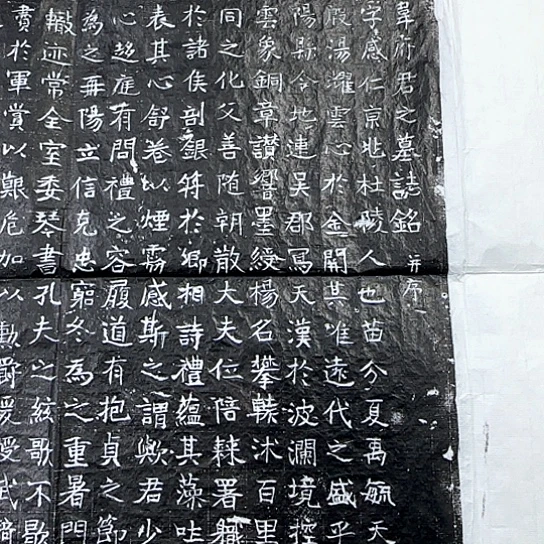 韋府君之墓誌銘 并序
字感仁京兆杜陵人也苗分夏禹毓天
殷湯濯雲心於金開其唯遠代之盛乎
陽縣令地連吳郡寫天漢於波瀾境控
雲象銅章讃響墨綬楊名攀轅沭百里
同之化父善随朝散大夫仁陪棘署職
於諸侯剖銀符於卿相詩禮蘊其藻
表其心舒卷以煙霧感斯之謂歟君少
心趍庭有問禮之容履道有抱貞之節
為之再陽立信克忠窮冬為之重暑門
轍迹常全室委琴書孔夫之絃歌不歇
賁於軍賞以艱危加以勲爵爰受武